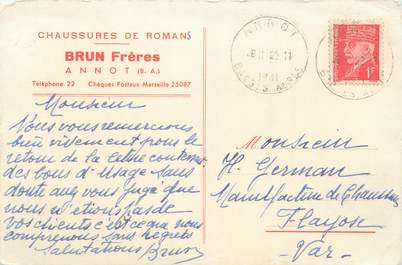 CHAUSSURES DE ROMANS
BRUN Frères
ANNOT (B. A.)
Téléphone 22 Chèques Postaux Marseille 25087
Monsieur
Nous vous remercions
bien vivement pour le
retour de la lettre
des bons d'Usage sans
doute avez vous jugé que
nous n'étions pas de
vos clients c'est ce que nous
comprenons sans regrets
Salutations Brun
ANNOT
1941
BASSES ALPES
1F
Monsieur
H. Germain
Manufacture de Chaussures
Flayosc
Var